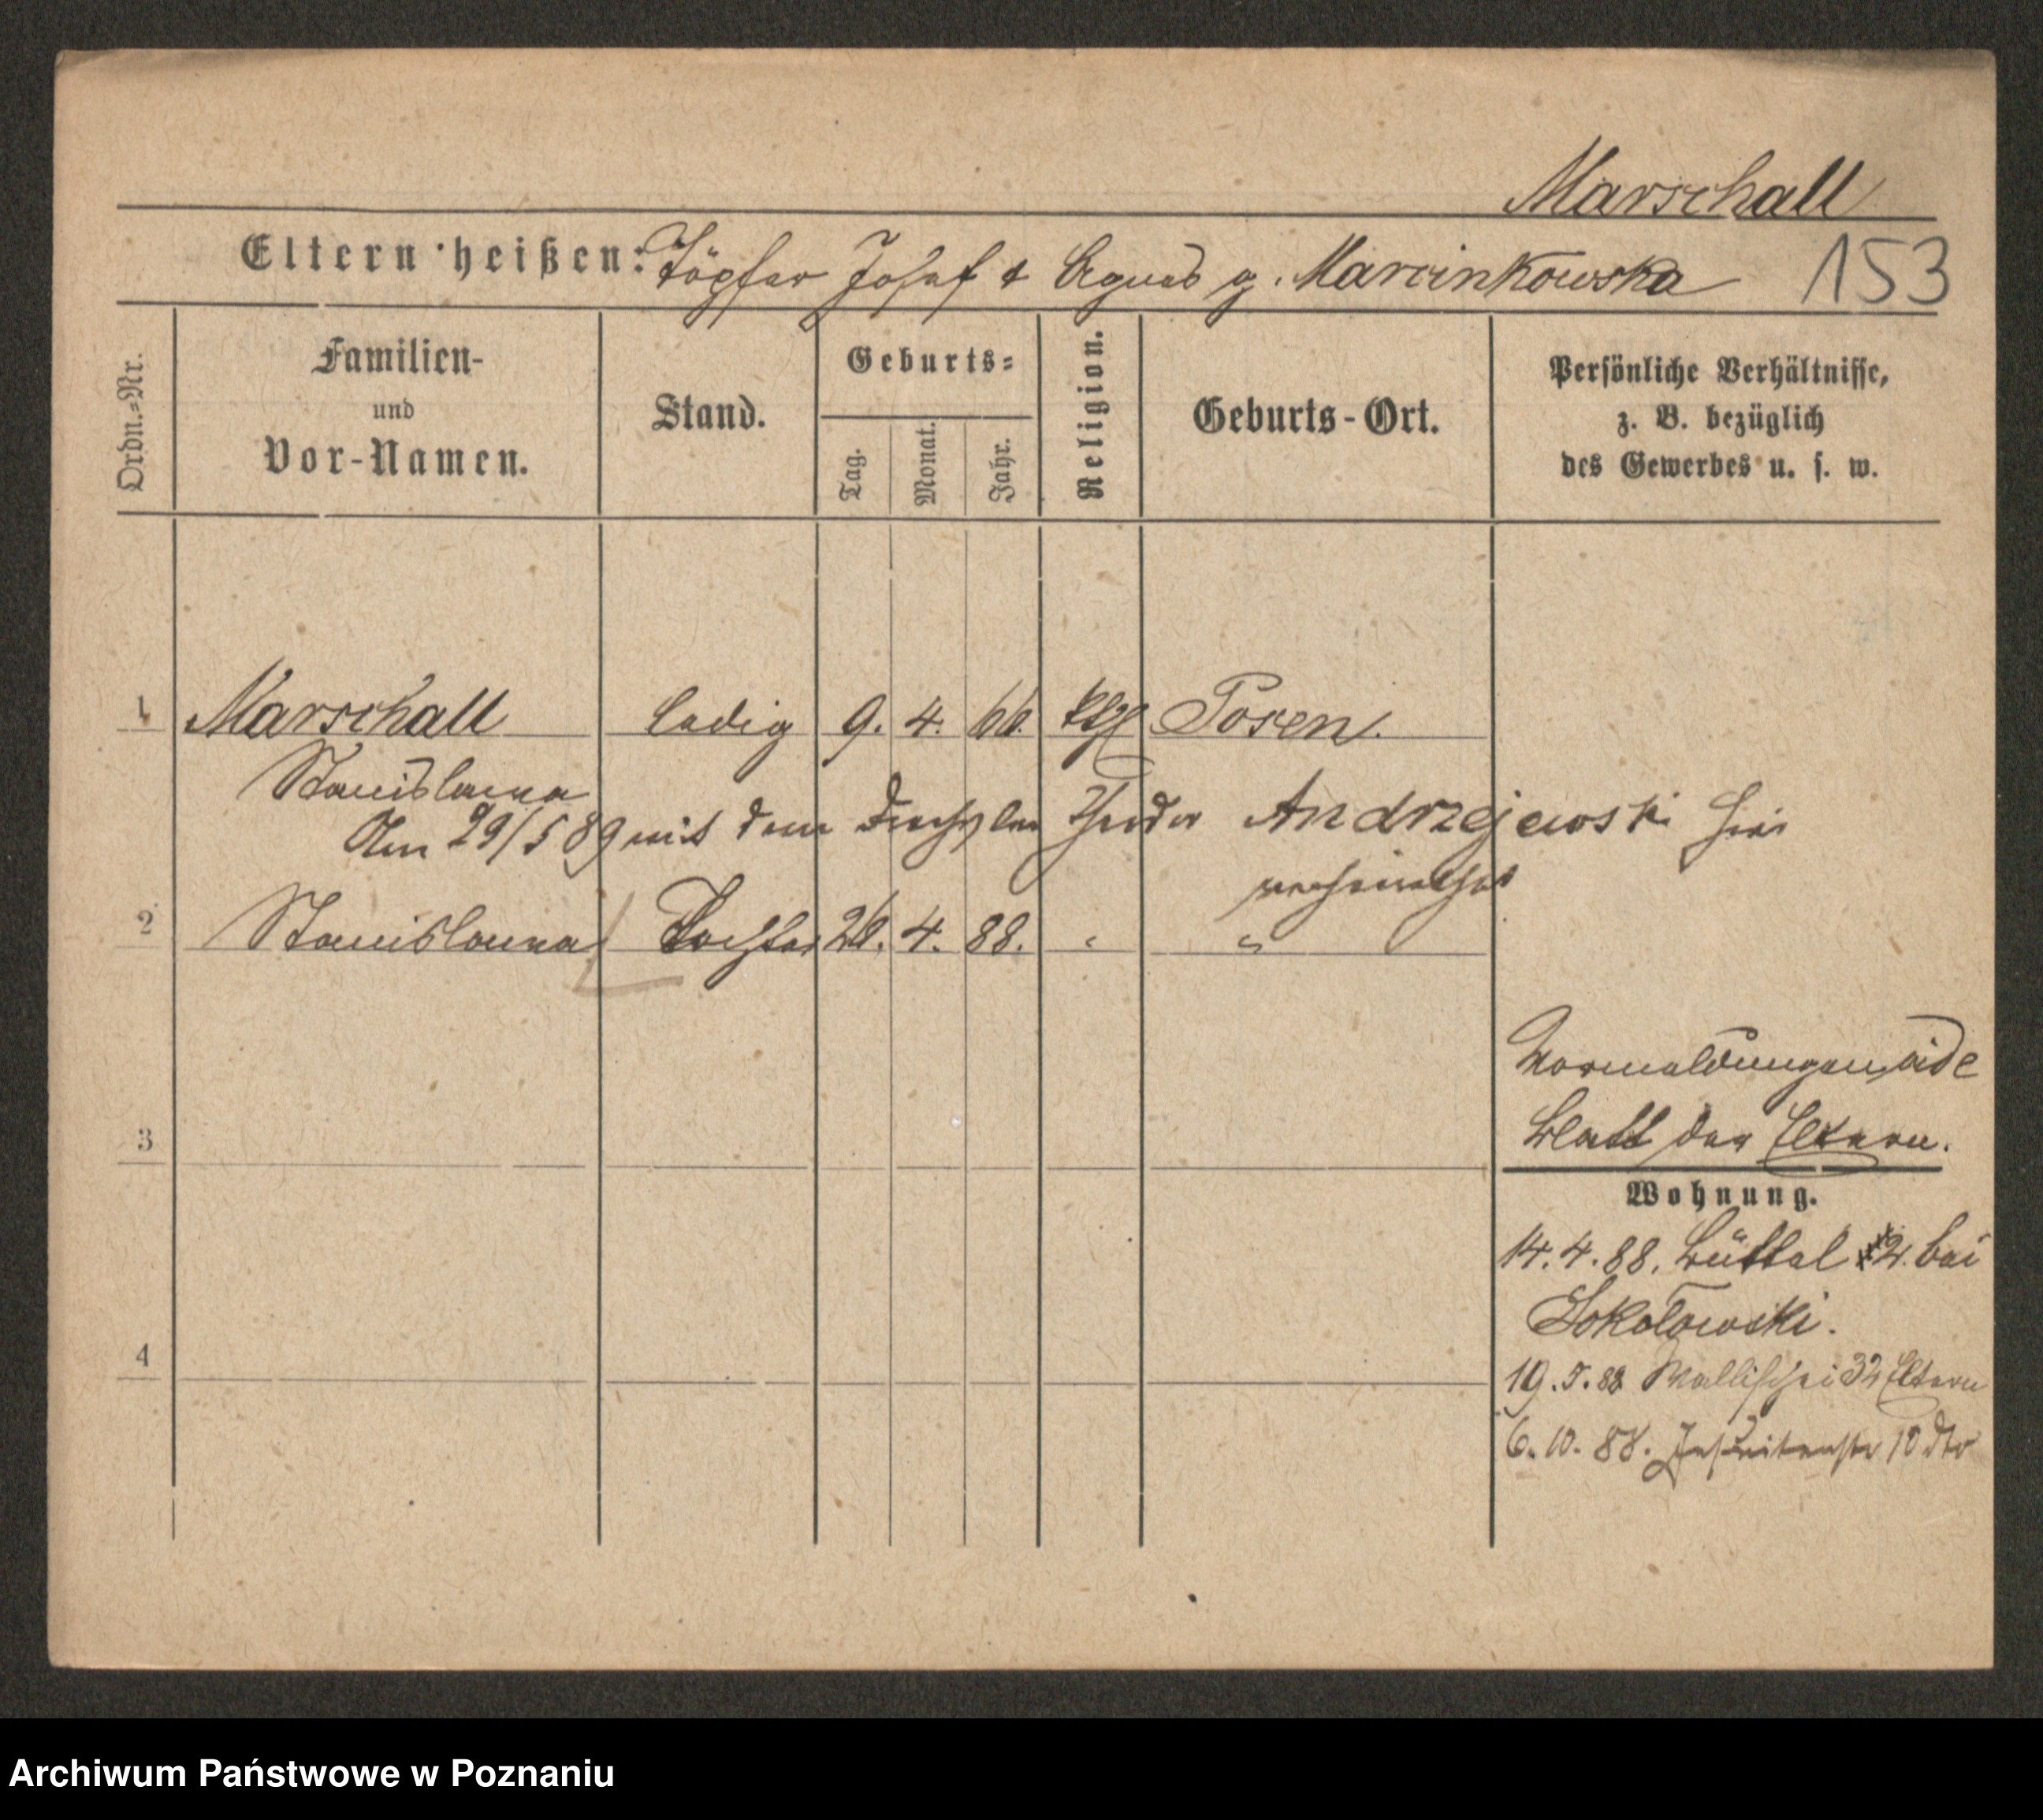 Marschall
Eltern heißen: Töpfer Josef & Agnes g. Marcinkowska
153
Ordn.-Nr.
Familien-
und
Vor-Namen.
Stand.
Geburts-
Tag.
Monat.
Jahr.
Religion.
Geburts-Ort.
Persönliche Verhältnisse,
z. B. bezüglich
des Gewerbes u. s. w.
1 Marschall ledig 9. 4. 66. kth Posen.
Stanislawa
Am 29/5 89 mit dem Drechsler Theodor Andrzejewski hier
verheirathet
2 Stanislawa Tochter 26. 4. 88. " "
Vormeldungen vide
Blatt der Eltern.
3
Wohnung.
14. 4. 88. Büttel 2. bei
Sokolowski.
4
19. 5. 88 Wallischei 32 Eltern
6. 10. 88. Jesuitenstr 10 dto
Archiwum Państwowe w Poznaniu